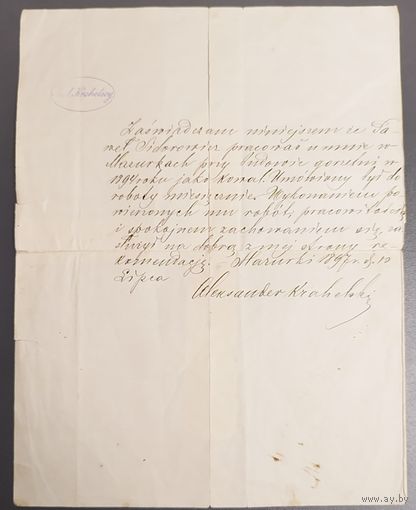 Zaświadczam niniejszem że Pa-
weł Sidorowicz pracował u mnie w
Mazurkach przy budowie gorzelni w
1897 roku jako kowal. Umówiony był do
roboty miesięcznie. Wykonaniem po-
wierzonych mu robót, pracowitością
i spokojnem zachowaniem się, za-
służył na dobrą z mej strony re-
komendację. Mazurki 1897 r. d. 10
Lipca
Aleksander Krahelski
www.ay.by